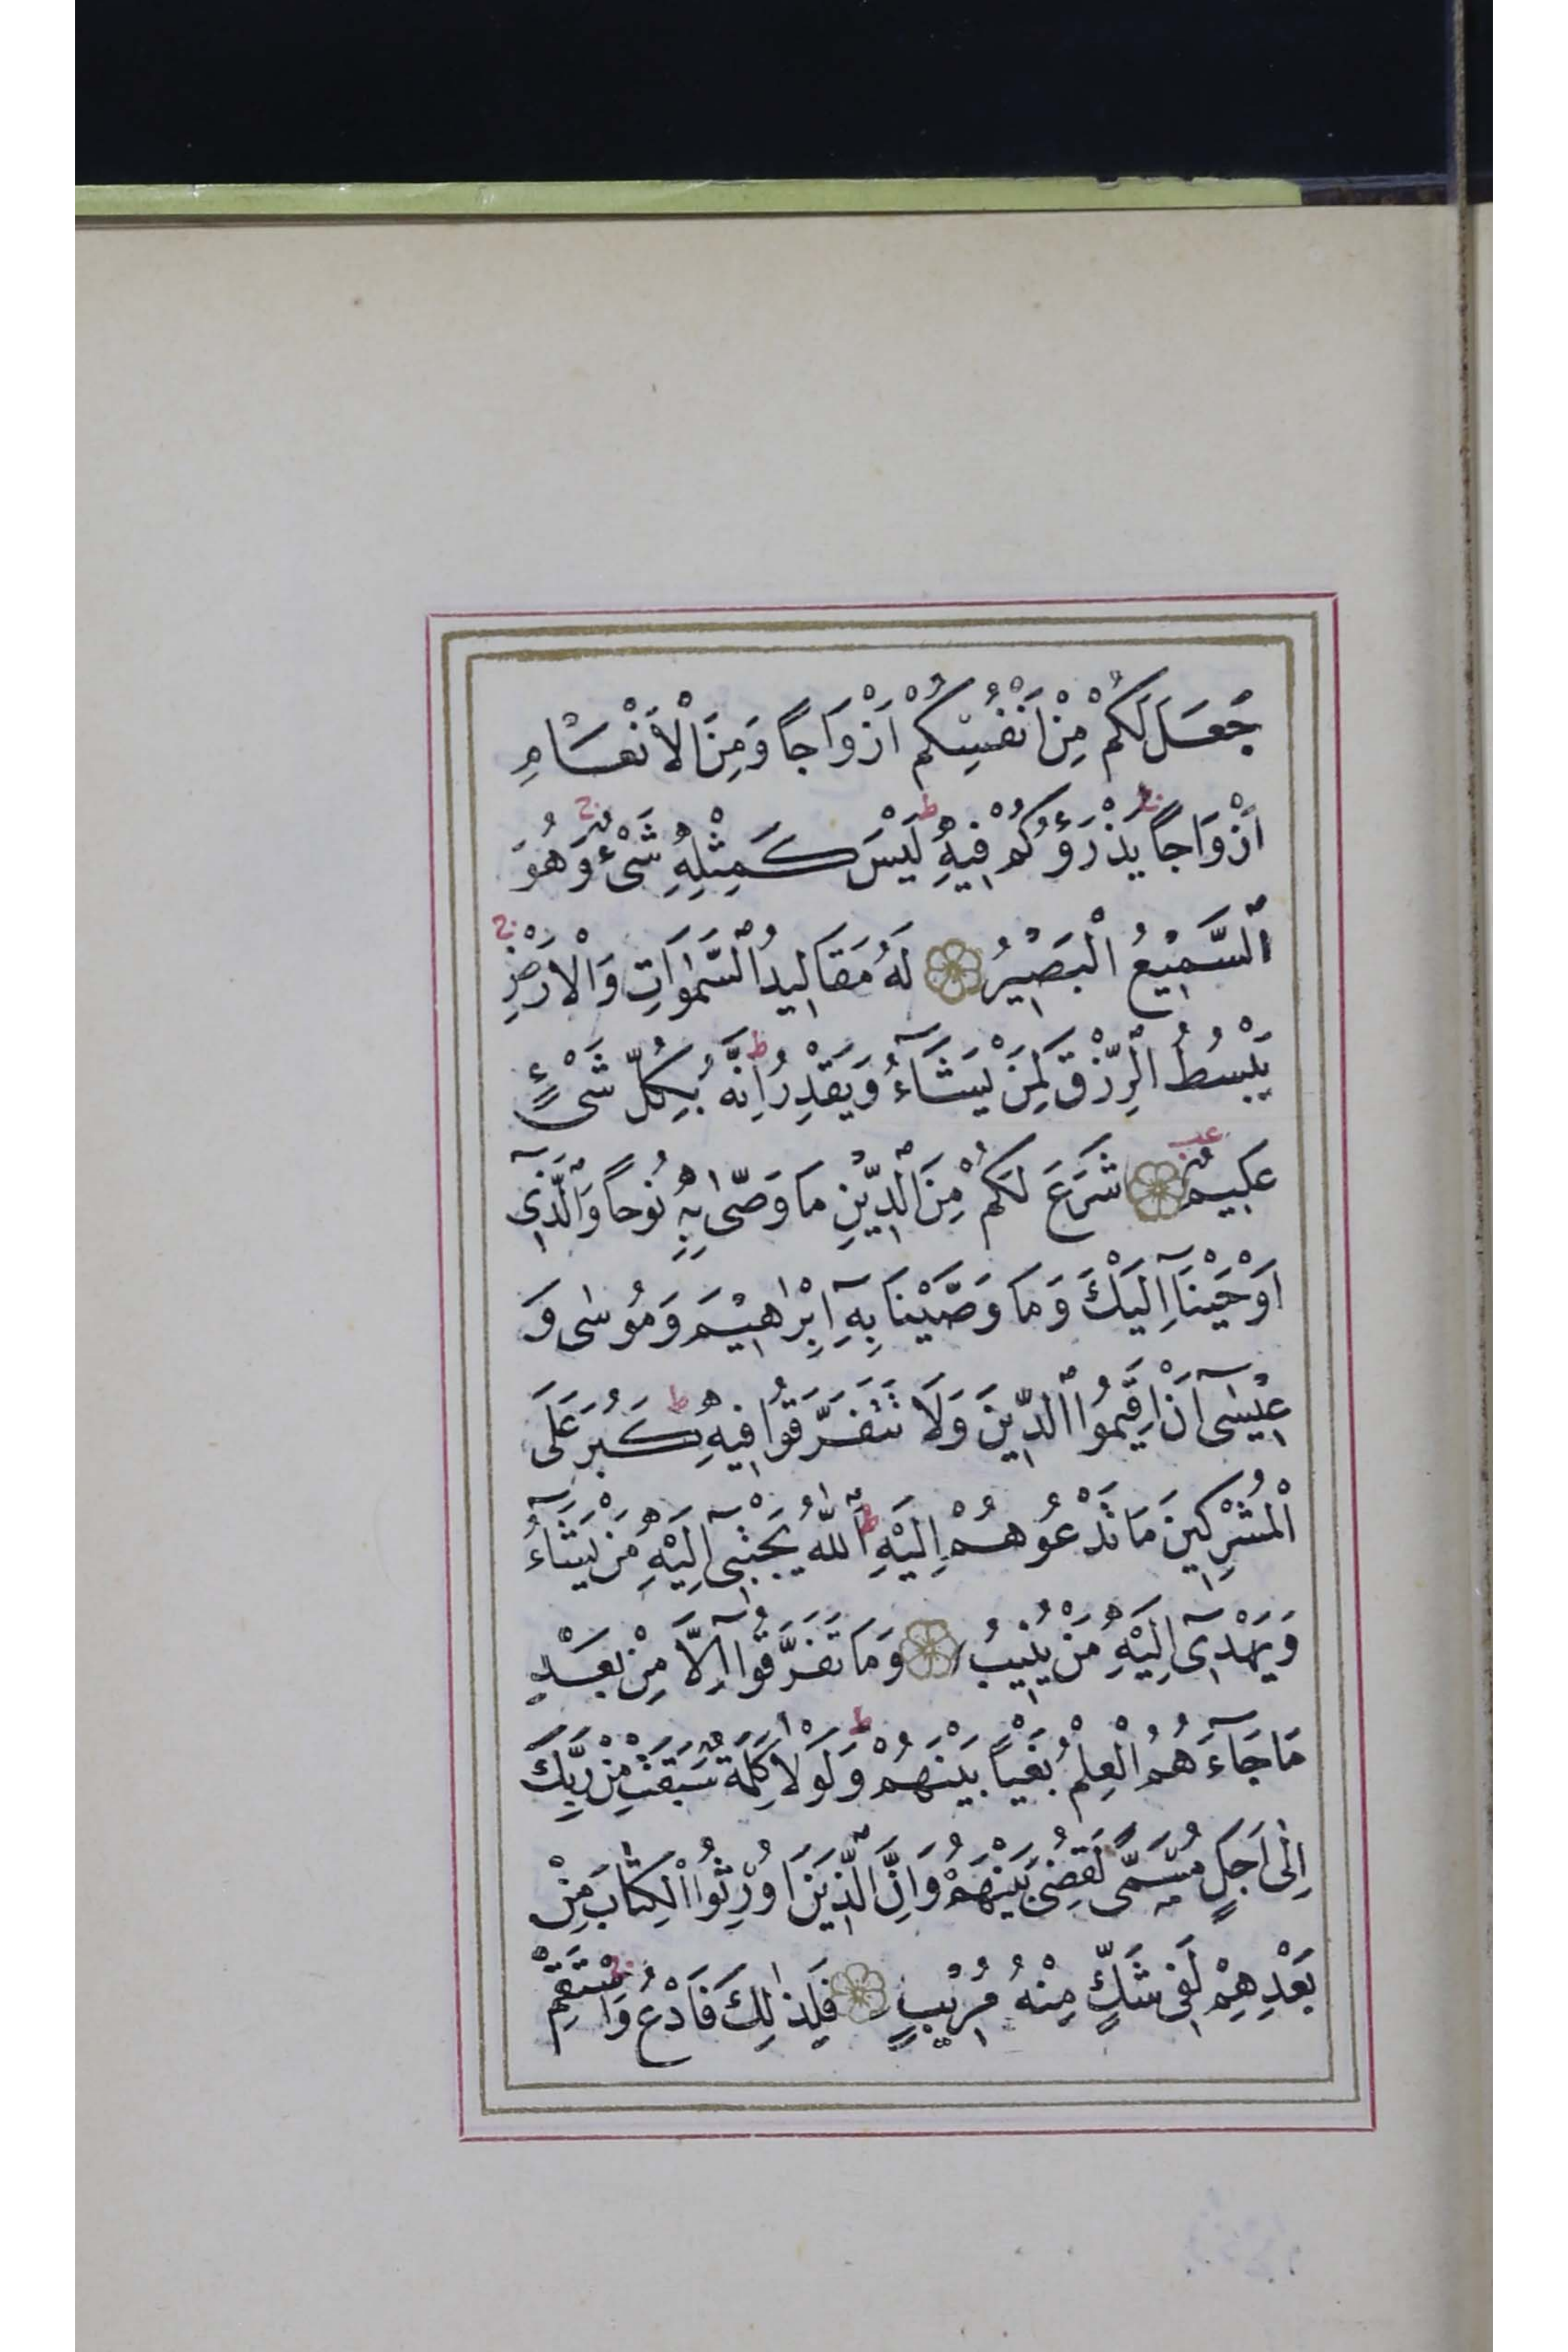 جَعَلَ لَكُمْ مِنْ اَنْفُسِكُمْ اَزْوَاجًا وَمِنَ الْاَنْعَامِ
اَزْوَاجًا ج يَذْرَؤُكُمْ فِيهِ ط لَيْسَ كَمِثْلِهِ شَىْءٌ ج وَهُوَ
السَّمِيْعُ الْبَصِيْرُ لَهُ مَقَالِيدُ السَّمٰوَاتِ وَالْاَرْضِ ج
يَبْسُطُ الرِّزْقَ لِمَنْ يَشَآءُ وَيَقْدِرُ ط اِنَّهُ بِكُلِّ شَىْءٍ
عَلِيمٌ عب شَرَعَ لَكُمْ مِنَ الدِّيْنِ مَا وَصّٰى بِهِ نُوحًا وَالَّذِىٓ
اَوْحَيْنَآ اِلَيْكَ وَمَا وَصَّيْنَا بِهِٓ اِبْرٰاهِيْمَ وَمُوسٰى وَ
عِيْسٰىٓ اَنْ اَقِيمُوا الدِّينَ وَلَا تَتَفَرَّقُوا فِيهِ ط كَبُرَ عَلَى
الْمُشْرِكِينَ مَا تَدْعُوهُمْ اِلَيْهِ ط اَللّٰهُ يَجْتَبِىٓ اِلَيْهِ مَنْ يَشَآءُ
وَيَهْدِىٓ اِلَيْهِ مَنْ يُنِيْبُ وَمَا تَفَرَّقُوآ اِلَّا مِنْ بَعْدِ
مَا جَآءَهُمُ الْعِلْمُ بَغْيًا بَيْنَهُمْ ط وَلَوْلَا كَلِمَةٌ سَبَقَتْ مِنْ رَبِّكَ
اِلٰٓى اَجَلٍ مُسَمًّى لَقُضِىَ بَيْنَهُمْ وَاِنَّ الَّذِيْنَ اُورِثُوا الْكِتَابَ مِنْ
بَعْدِهِمْ لَفِى شَكٍّ مِنْهُ مُرِيْبٍ فَلِذٰلِكَ فَادْعُ ج وَاسْتَقِمْ